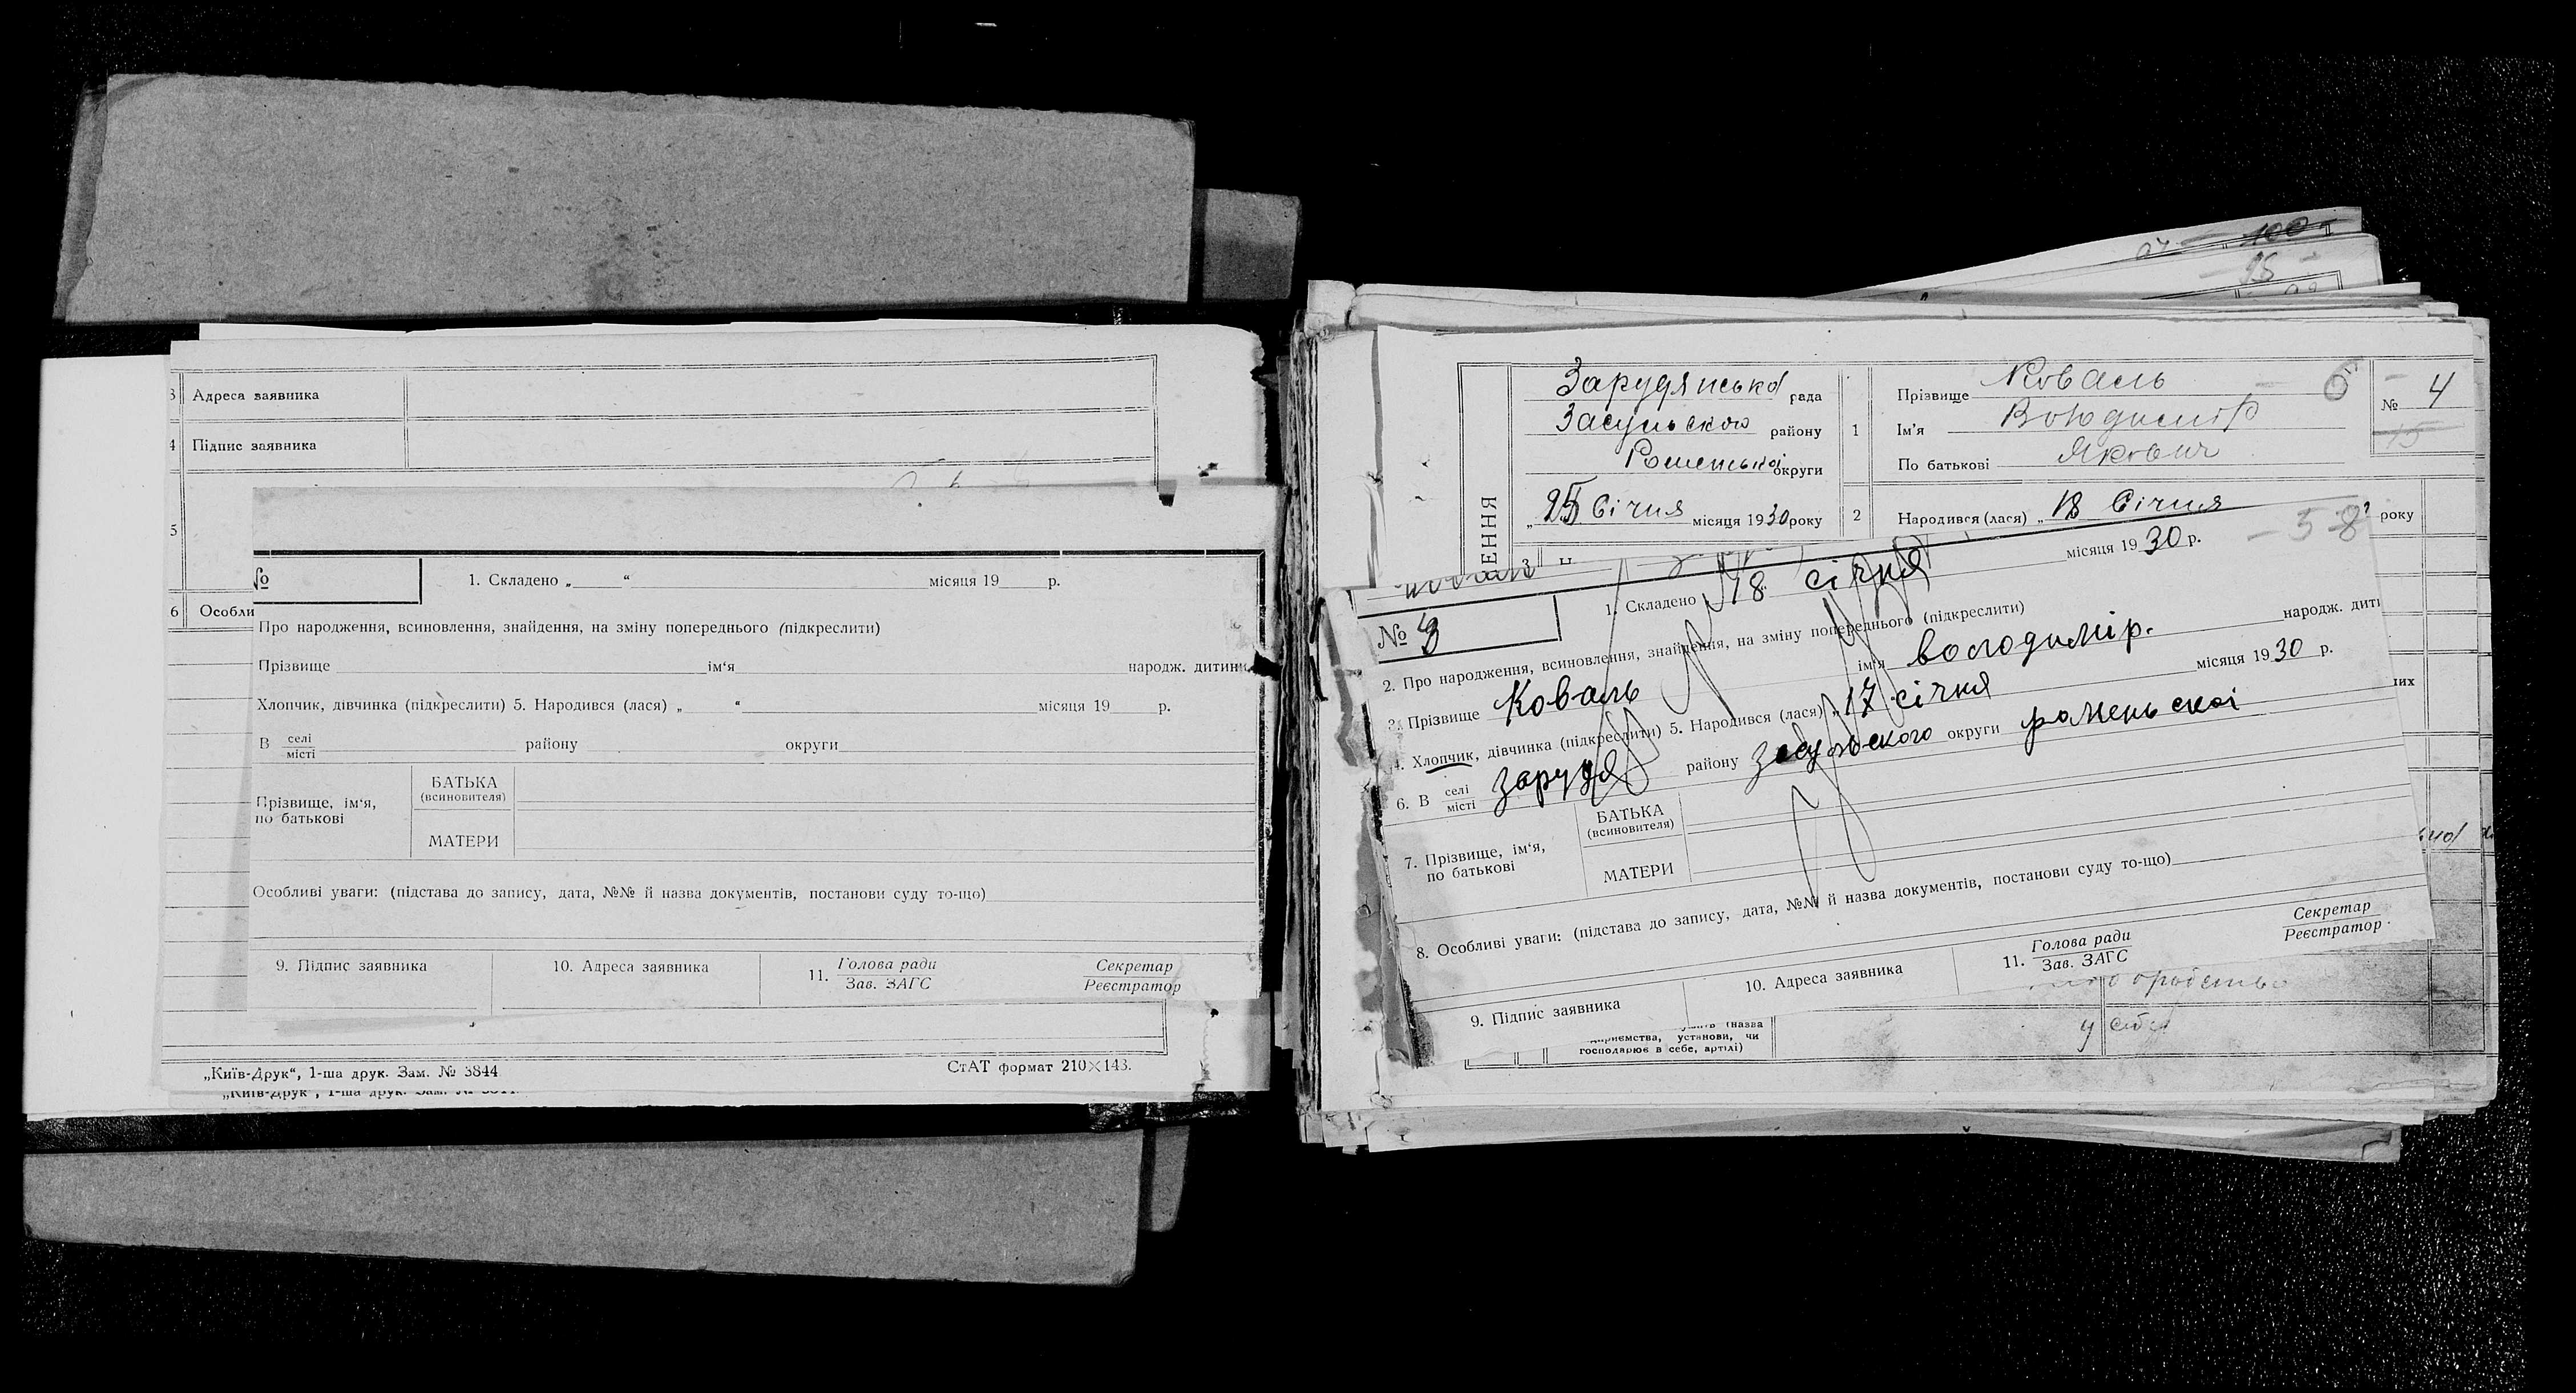 3 Адреса заявника
4 Підпис заявника
5
6 Особли
№
1. Складено „ “ місяця 19 р.
Про народження, всиновлення, знайдення, на зміну попереднього (підкреслити)
Прізвище ім‘я народж. дитини
Хлопчик, дівчинка (підкреслити) 5. Народився (лася) „ “ місяця 19 р.
В селі району округи
місті
Прізвище, ім‘я, по батькові
БАТЬКА
(всиновителя)
МАТЕРИ
Особливі уваги: (підстава до запису, дата, №№ й назва документів, постанови суду то-що)
9. Підпис заявника
10. Адреса заявника
11. Голова ради
Зав. ЗАГС
Секретар
Реєстратор
„Київ-Друк“, 1-ша друк. Зам. № 3844
СтАТ формат 210×143.
„Київ-Друк“, 1-ша друк. Зам. № 3844
07 — 100
— 95 —
ЕННЯ
Зарудянської рада
Засульського району
Роменської округи
„25 Січня місяця 1930 року
1 Прізвище Коваль
Ім’я Володимір
По батькові Якович
№ 4
15
2 Народився (лася) „18 Січня року
— 5-8
3
№ 3
1. Складено 18 січня місяця 1930 р.
2. Про народження, всиновлення, знайдення, на зміну попереднього (підкреслити)
3. Прізвище Коваль ім‘я володимір. народж. дити
4. Хлопчик, дівчинка (підкреслити) 5. Народився (лася) „17 січня місяця 1930 р.
6. В селі зарудя району засульского округи роменьскоі
місті
7. Прізвище, ім‘я, по батькові
БАТЬКА
(всиновителя)
МАТЕРИ
8. Особливі уваги: (підстава до запису, дата, №№ й назва документів, постанови суду то-що)
9. Підпис заявника
10. Адреса заявника
11. Голова ради
Зав. ЗАГС
Секретар
Реєстратор
их
(назва
приємства, установи, чи
господарює в себе, артілі)
у себе